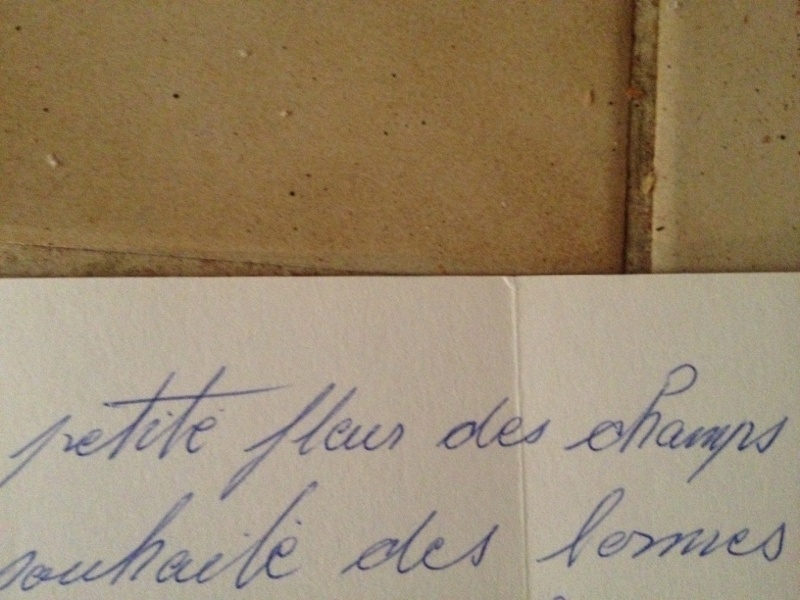 petite fleur des champs
souhaite des bonnes